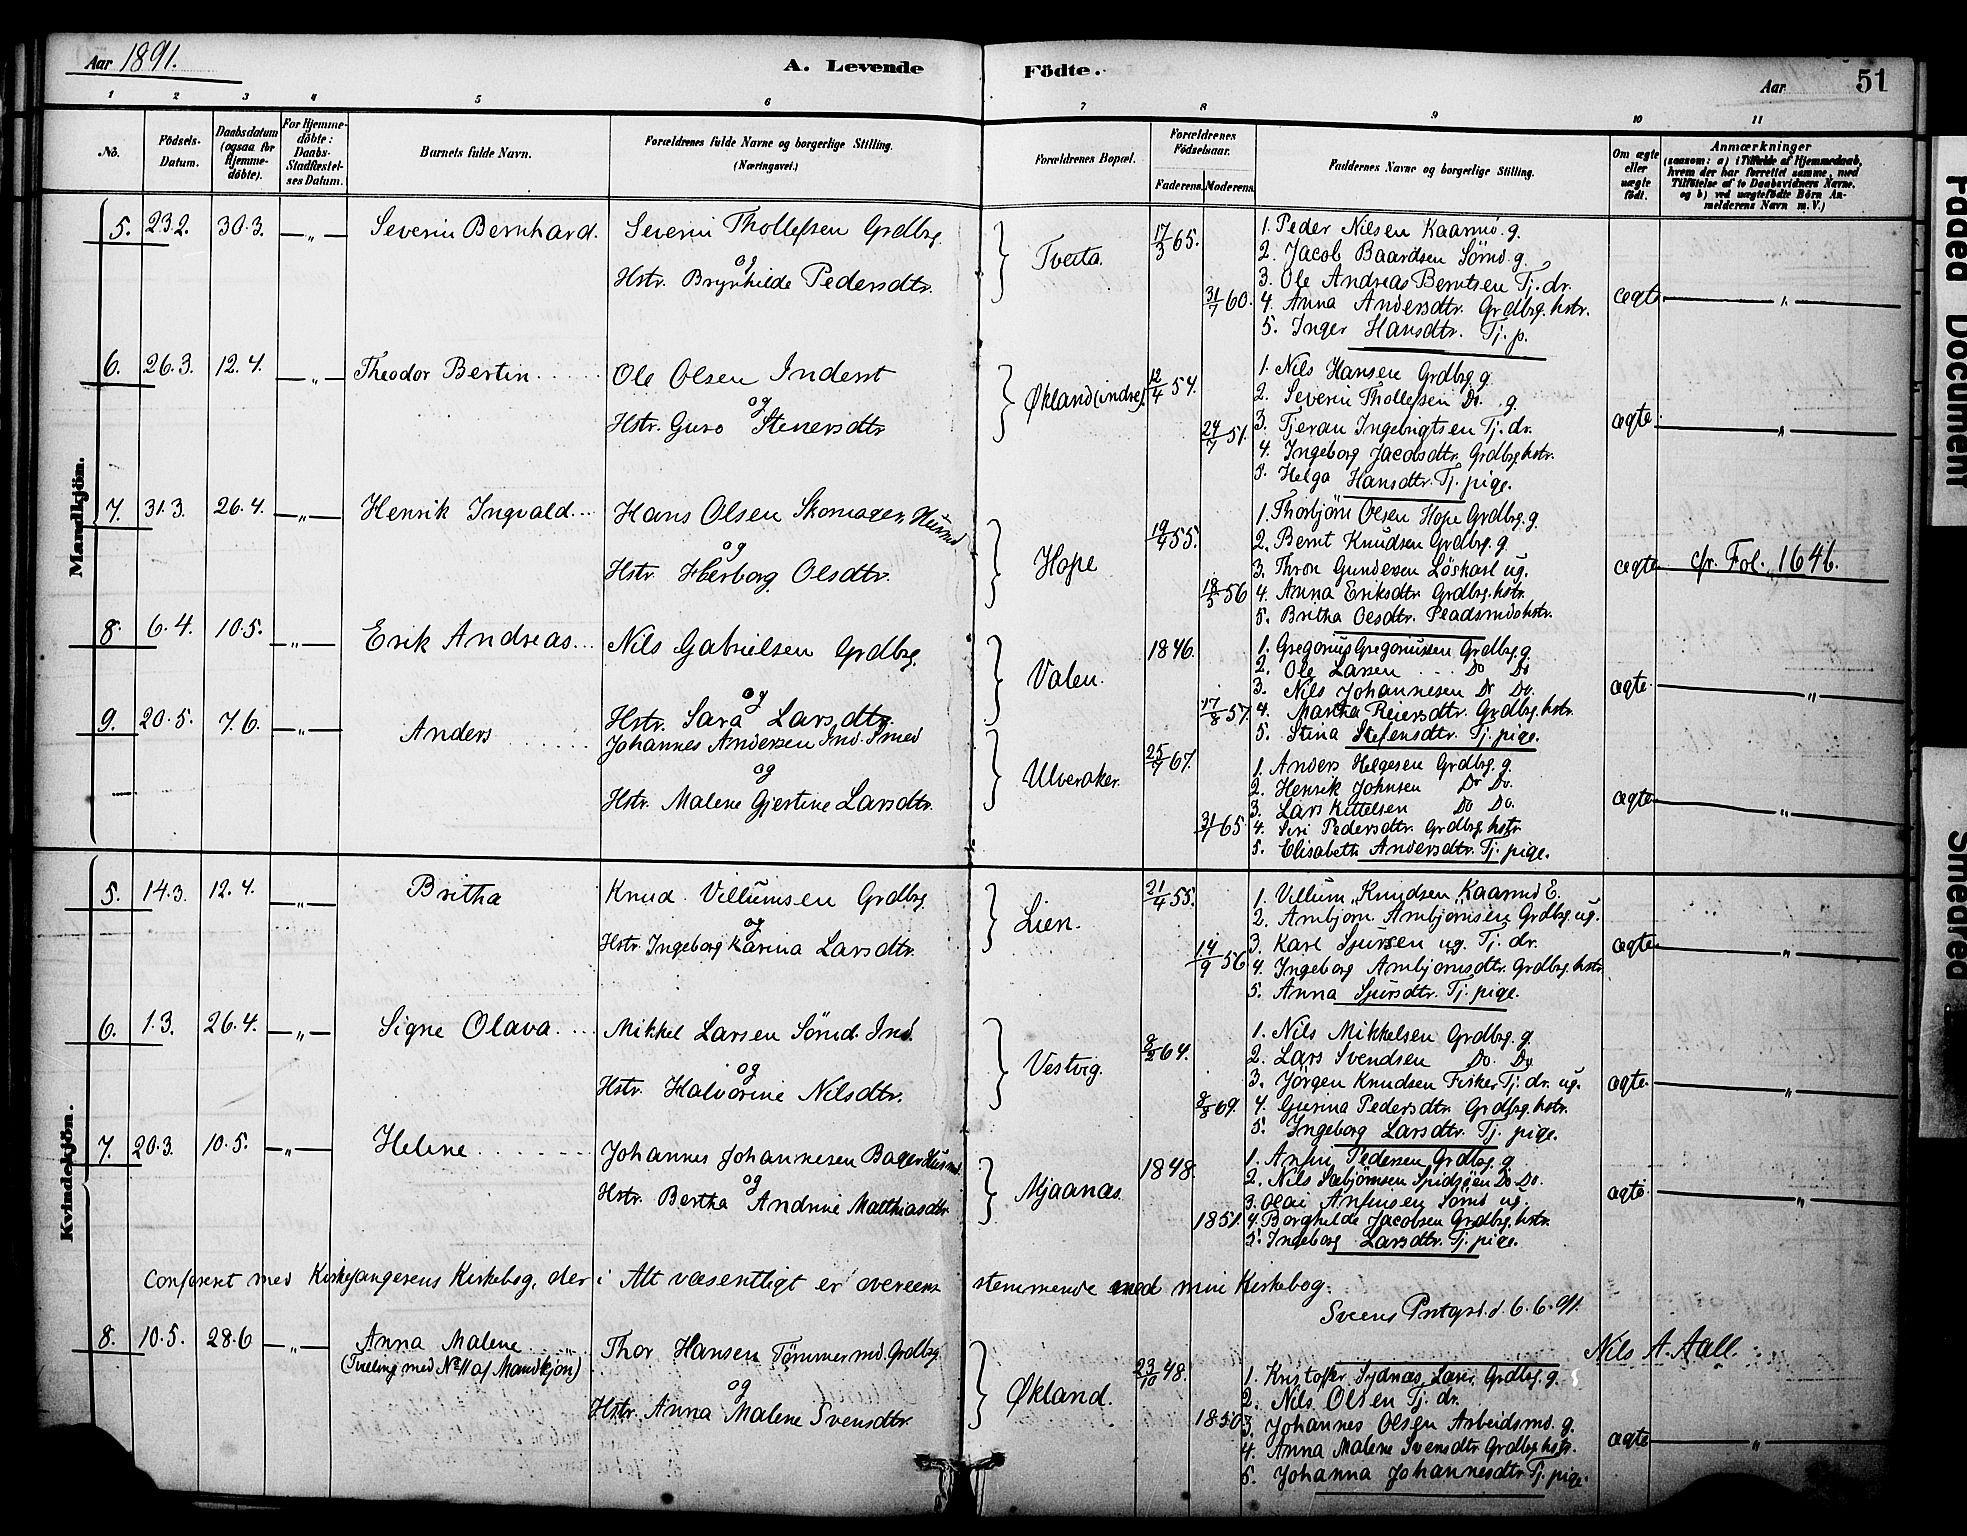 Aar 1891.
A. Levende Födte.
Aar 51
1 2 3 4 5 6 7 8 9 10 11
No.
Födsels-Datum.
Daabsdatum (ogsaa for Hjemme-döbte).
For Hjemme-döbte: Daabs-Stadfæstel-ses Datum.
Barnets fulde Navn.
Forældrenes fulde Navne og borgerlige Stilling. (Næringsvei.)
Forældrenes Bopæl.
Forældrenes Födselsaar.
Faderens. Moderens.
Faddernes Navne og borgerlige Stilling.
Om ægte eller uægte født.
Anmærkninger
(saasom: a) i Tilfælde af Hjemmedaab, hvem der har forrettet samme, med Tilföielse af to Daabsvidners Navne. og b) ved uægtefødte Börn An-melderens Navn m. V.)
Mandkjön.
5. 23.2. 30.3. —„— Severin Bernhard. Severin Thollefsen Grdbrg.
og
Hstr. Brynhilde Pedersdtr.
Tveita. 17/3 65. 31/7 60.
1. Peder Nilsen Kaarmd. g.
2. Jacob Baardsen Sömd. g.
3. Ole Andreas Berntsen Tj. dr.
4. Anna Andersdtr. Grdbrg. hstr.
5. Inger Hansdtr. Tj. p.
ægte „
6. 26.3. 12.4. —„— Theodor Bertin Ole Olsen Inderst
og
Hstr. Guro Stenersdtr
Økland (indre). 12/4 54. 24/7 51.
1. Nils Hansen Grdbrg. g.
2. Severin Thollefsen Do. g.
3. Tjeran Ingebrigtsen Tj. dr.
4. Ingeborg Jacobsdtr. Grdbrg. hstr.
5. Helga Hansdtr. Tj. pige.
ægte „
7. 31.3. 26.4. —„— Henrik Ingvald Hans Olsen Skomager, Husmd
og
Hstr. Herborg Olsdtr.
Hope 19/4 55. 18/5 56
1. Thorbjörn Olsen Hope Grdbrg. g.
2. Bernt Knudsen Grdbrg. g.
3. Thron Gundersen Löskarl ug.
4. Anna Eriksdtr Grdbrg. hstr.
5. Britha Olsdtr. Pladsmdshstr.
ægte cfr. Fol. 164b.
8. 6.4. 10.5. —„— Erik Andreas Nils Gabrielsen Grdbrg.
og
Hstr. Sara Larsdtr.
Valen. 1846. 17/8 57.
1. Gregorius Gregoriussen Grdbrg. g.
2. Ole Larsen Do Do
3. Nils Johannesen Do Do.
4. Martha Reiersdtr. Grdbrg. hstr.
5. Stina Stefensdtr. Tj. pige.
ægte „
9. 20.5. 7.6. —„— Anders Johannes Andersen Ind. Smed
og
Hstr. Malene Gjertine Larsdtr.
Ulveraker. 25/7 67. 31/7 65
1. Anders Helgesen Grdbrg. g.
2. Henrik Johnsen Do Do.
3. Lars Kittelsen Do Do.
4. Siri Pedersdtr. Grdbrg. hstr.
5. Elisabeth Andersdtr. Tj. pige.
ægte „
Kvindekjön.
5. 14.3. 12.4. —„— Britha Knud Villumsen Grdbrg.
og
Hstr. Ingeborg Karina Larsdtr.
Lien. 21/4 55. 14/9 56
1. Villum Knudsen Kaarmd E.
2. Arnbjörn Arnbjörnsen Grdbrg. ug.
3. Karl Sjursen ug. Tj. dr.
4. Ingeborg Arnbjörnsdtr. Grdbrg. hstr
5. Anna Sjursdtr. Tj. pige.
ægte „
6. 1.3. 26.4. —„— Signe Olava Mikkel Larsen Sömd. Ind.
og
Hstr. Halvorine Nilsdtr.
Vestvig. 8/2 64. 8/8 69.
1. Nils Mikkelsen Grdbrg. g.
2. Lars Svendsen Do. Do
3. Jörgen Knudsen Fisker Tj. dr. ug.
4. Gurina Pedersdtr. Grdbrg. hstr.
5. Ingeborg Larsdtr. Tj. pige.
ægte „
7. 20.3. 10.5. —„— Helene Johannes Johannesen Bager Husmd
og
Hstr. Bertha Andrine Matthiasdtr
Mjaanæs. 1848. 1851.
1. Anfin Pedersen Grdbrg. g
2. Nils Sæbjörnsen Do Do.
3. Olai Anfinsen Sömd ug.
4. Borghilde Jacobsen Grdbrg. hstr.
5. Ingeborg Larsdtr. Tj. pige.
ægte „
Conferert med Kirkesangerens Kirkebog, der i Alt væsentligt er overeens stemmende med min Kirkebog.
Sveens Prstgrd. d. 6.6.91.
Nils A. Aall.
8. 10.5. 28.6 —„— Anna Malene
(Tvilling med No 11 af Mandkjön)
Thor Hansen Tømmermd. Grdbrg
og
Hstr. Anna Malene Svensdtr.
Økland. 23/10 48. 1850
1. Kristoffer Sydnæs Lærer, Grdbrg. g.
2. Nils Olsen Tj. dr.
3. Johannes Olsen Arbeidsmd. g.
4. Anna Malene Svensdtr Grdbrg. hstr.
5. Johanna Johannesdtr. Tj. pige.
ægte „
Faded Document
Smeared